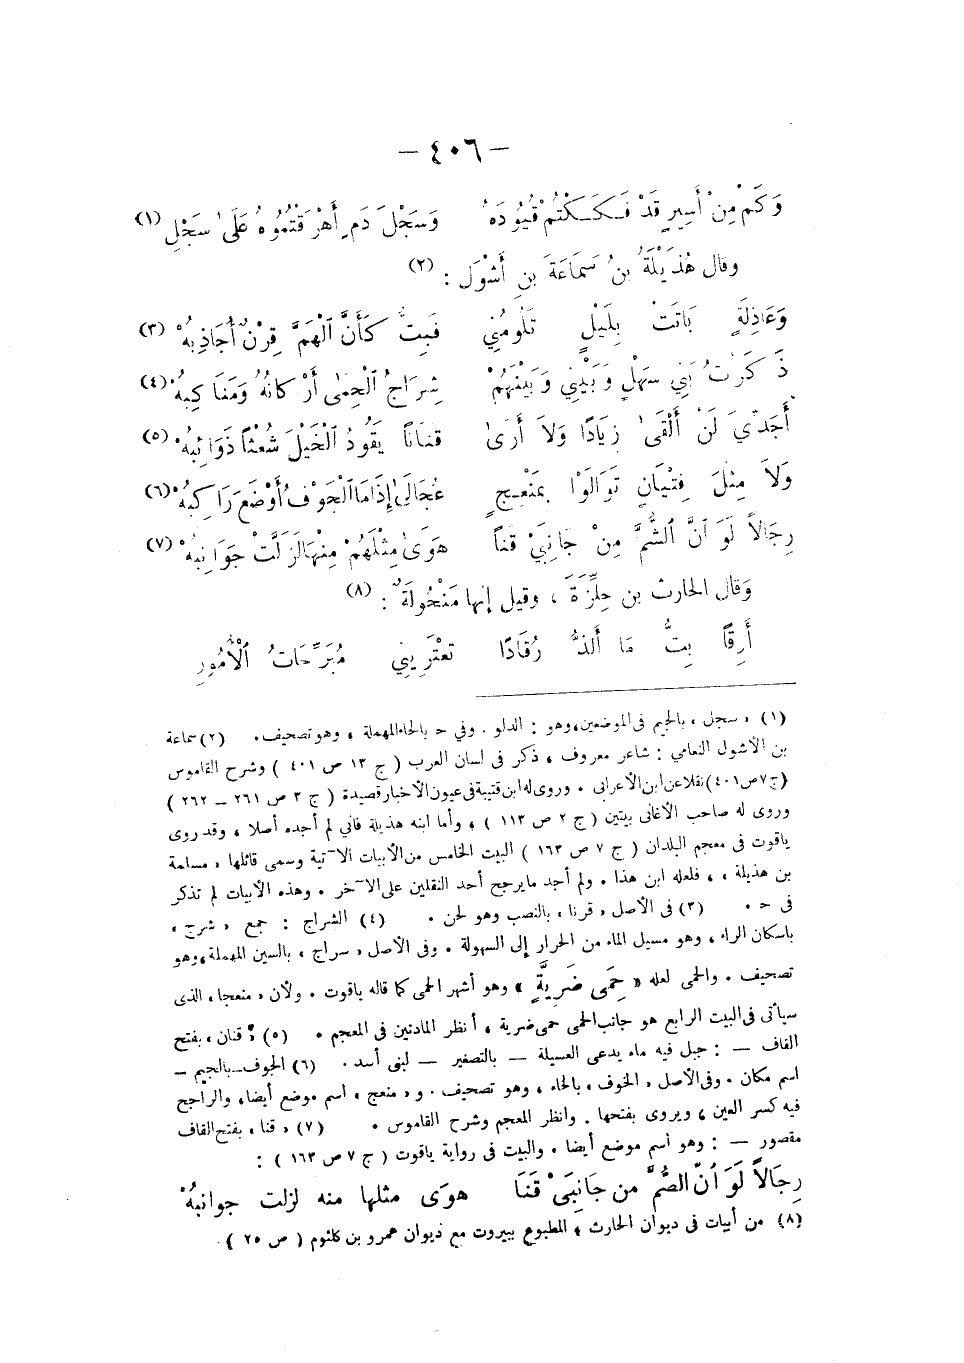 — ٤٠٦ —
وَكَمْ مِنْ أَسِيرٍ قَدْ فَكَكْتُمْ قُيُودَهُ وَسَجْلَ دَمٍ أَهْرَقْتُمُوهُ عَلَى سَجْلِ (١)
وقال هُذَيْلَةُ بنُ سَمَاعَةَ بنِ أَشْوَلَ : (٢)
وَعَاذِلَةٍ بَاتَتْ بِلَيْلٍ تَلُومُنِي فَبِتُّ كَأَنَّ ٱلْهَمَّ قِرْنٌ أُجَاذِبُهْ (٣)
ذَكَرْتُ بَنِي سَهْلٍ وَبَيْنِي وَبَيْنَهُمْ شِرَاجُ ٱلْحِمَى أَرْكَانُهُ وَمَنَاكِبُهْ (٤)
أَجَدِّيَ لَنْ أَلْقَى زِيَادًا وَلاَ أَرَى قَنَانًا يَقُودُ ٱلْخَيْلَ شُعْثًا ذَوَائِبُهْ (٥)
وَلاَ مِثْلَ فِتْيَانٍ تَوَالَوْا بِمَنْعِجٍ عُجَالَى إِذَا مَا ٱلْجَوْفُ أَوْضَعَ رَاكِبُهْ (٦)
رِجَالاً لَوَ ٱنَّ ٱلشُّمَّ مِنْ جَانِبَيْ قَناً هَوَى مِثْلَهُمْ مِنْهَا لَزَلَّتْ جَوَانِبُهْ (٧)
وَقال الحارث بن حِلِّزَةَ ، وقيل إنها مَنْحُولَةٌ : (٨)
أَرِقًا بِتُّ مَا أَلَذُّ رُقَادًا تَعْتَرِينِي مُبَرِّحَاتُ ٱلْأُمُورِ
(١) « سجل » بالجيم فى الموضعين، وهو : الدلو . وفي حـ بالحاء المهملة ، وهو تصحيف . (٢) سماعة
بن الأشول النعامي : شاعر معروف ، ذكر فى لسان العرب ( ج ١٣ ص ٤٠١ ) وشرح القاموس
(ج ٧ ص ٤٠١) نقلا عن ابن الأعرابى . وروى له ابن قتيبة فى عيون الأخبار قصيدة ( ج ٣ ص ٢٦١ – ٢٦٢ )
وروى له صاحب الأغانى بيتين ( ج ٢ ص ١١٣ ) ، وأما ابنه هذيلة فاني لم أجده أصلا ، وقد روى
ياقوت فى معجم البلدان ( ج ٧ ص ١٦٣ ) البيت الخامس من الأبيات الآتية وسمى قائلها « مسلمة
بن هذيلة » ، فلعله ابن هذا . ولم أجد ما يرجح أحد النقلين على الآخر . وهذه الأبيات لم تذكر
فى حـ . (٣) فى الأصل « قرنا » بالنصب وهو لحن . (٤) الشراج : جمع « شرج »
باسكان الراء ، وهو مسيل الماء من الحرار إلى السهولة . وفى الأصل « سراج » بالسين المهملة ، وهو
تصحيف . والحمى لعله « حِمَى ضَرِيَّةٍ » وهو أشهر الحمى كما قاله ياقوت . ولأن « منعجا » الذى
سيأتى فى البيت الرابع هو جانب الحمى حمى ضرية ، أنظر المادتين فى المعجم . (٥) « قنان » بفتح
القاف — : جبل فيه ماء يدعى العسيلة — بالتصغير — لبنى أسد . (٦) الجوف — بالجيم —
اسم مكان . وفى الأصل « الخوف » بالخاء ، وهو تصحيف . و « منعج » اسم موضع أيضا، والراجح
فيه كسر العين ، ويروى بفتحها . وانظر المعجم وشرح القاموس . (٧) « قنا » بفتح القاف
مقصور — : وهو اسم موضع أيضا . والبيت فى رواية ياقوت ( ج ٧ ص ١٦٣ ) :
رِجَالاً لَوَ ٱنَّ الصُّمَّ من جَانِبَيْ قَنَا هوَى مثلها منه لزلت جوانبُهْ
(٨) من أبيات فى ديوان الحارث ، المطبوع ببيروت مع ديوان عمرو بن كلثوم ( ص ٢٥ ) .